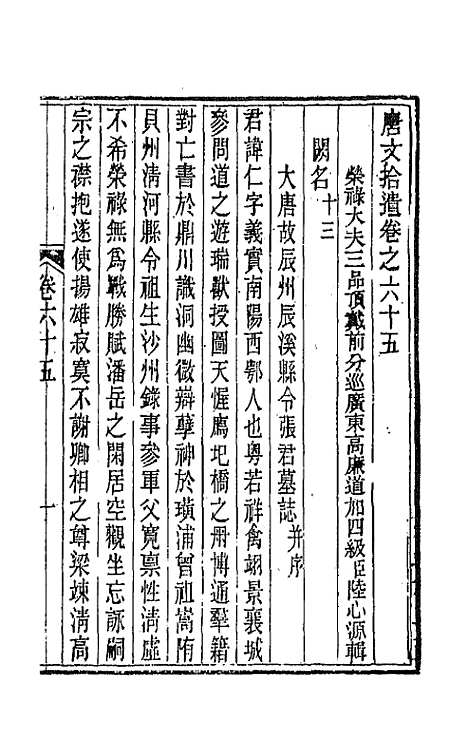 唐文拾遺卷之六十五
榮祿大夫三品頂戴前分巡廣東高廉道加四級臣陸心源輯
闕名十三
大唐故辰州辰溪縣令張君墓誌并序
君諱仁字義實南陽西鄂人也粵若祥禽翊景襄城
參問道之遊瑞獸授圖天幄薦圯橋之冊博通羣籍
對亡書於鼎川識洞幽微辯孽神於璜浦曾祖嵩隋
貝州清河縣令祖生沙州錄事參軍父寬稟性清虛
不希榮祿無爲戰勝賦潘岳之閑居空觀坐忘詠嗣
宗之襟抱遂使揚雄寂寞不謝卿相之尊梁竦清高
卷六十五
一